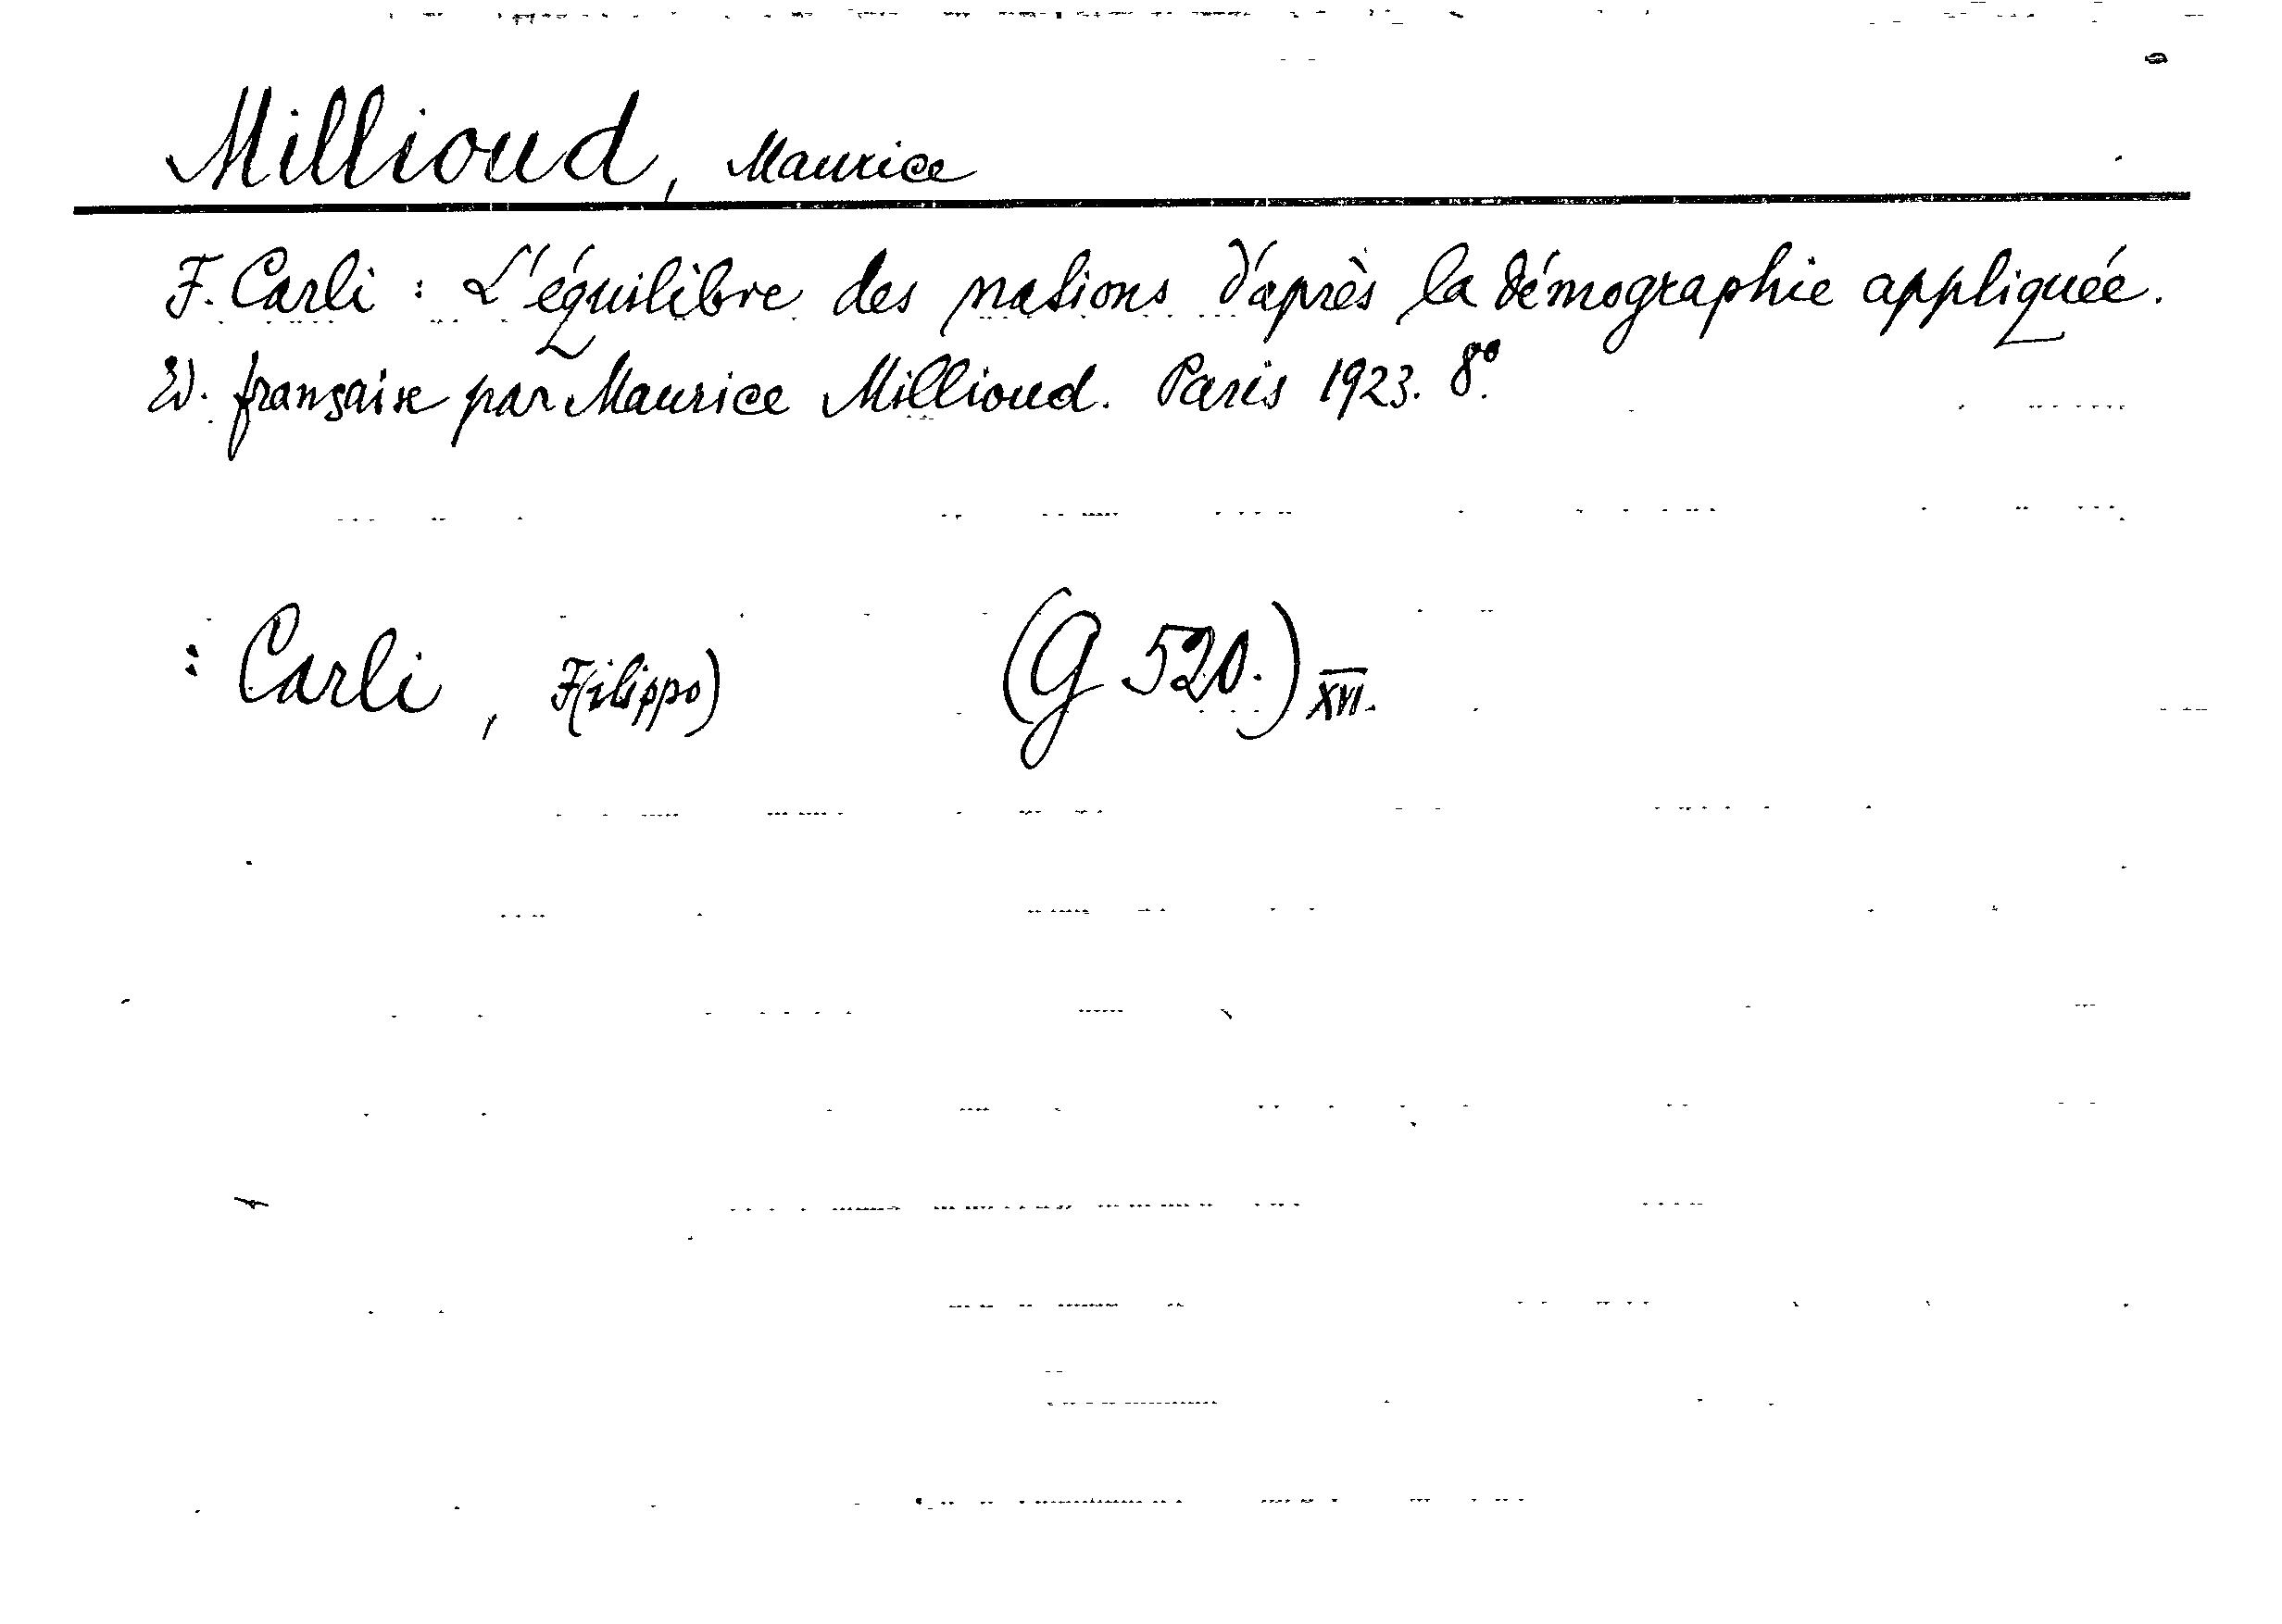 Millioud, Maurice
F. Carli : L'équilibre des nations d'après la démographie appliquée.
Ed. française par Maurice Millioud. Paris 1923. 8°.
: Carli, F(ilippo) (G 520.) XVI.